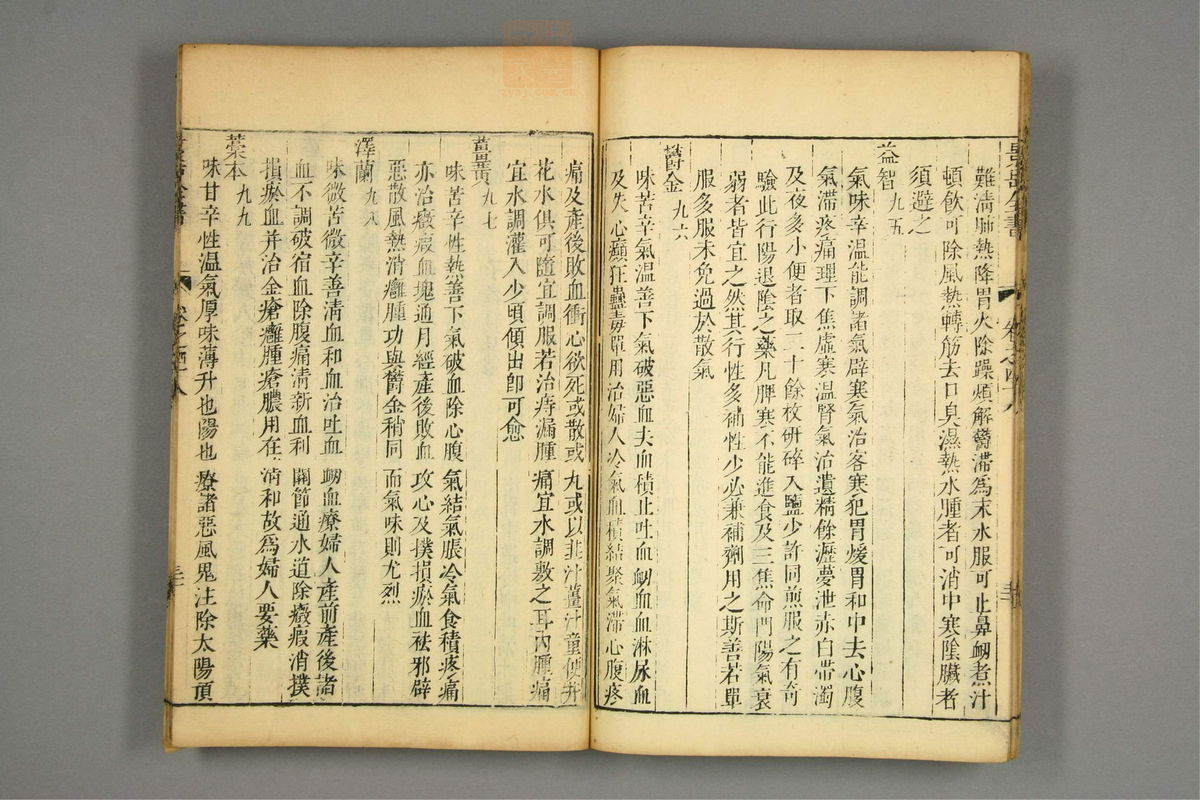 景岳全書 卷之四十八
難清肺熱降胃火除躁煩解鬱滯為末水服可止鼻衂煮汁
頓飲可除風熱轉筋去口臭濕熱水腫者可消中寒陰臟者
須避之
益智 九五
氣味辛温能調諸氣辟寒氣治客寒犯胃煖胃和中去心腹
氣滯疼痛理下焦虛寒温腎氣治遺精餘瀝夢泄赤白帶濁
及夜多小便者取二十餘枚研碎入鹽少許同煎服之有奇
驗此行陽退陰之藥凡脾寒不能進食及三焦命門陽氣衰
弱者皆宜之然其行性多補性少必兼補劑用之斯善若單
服多服未免過於散氣
鬱金 九六
味苦辛氣温善下氣破惡血去血積止吐血衂血血淋尿血
及失心癲狂蠱毒單用治婦人冷氣血積結聚氣滯心腹疼
痛及產後敗血衝心欲死或散或丸或以韭汁薑汁童便井
花水俱可隨宜調服若治痔漏腫痛宜水調敷之耳內腫痛
宜水調灌入少頃傾出即可愈
薑黃 九七
味苦辛性熱善下氣破血除心腹氣結氣脹冷氣食積疼痛
亦治癥瘕血塊通月經產後敗血攻心及撲損瘀血祛邪辟
惡散風熱消癰腫功與鬱金稍同而氣味則尤烈
澤蘭 九八
味微苦微辛善清血和血治吐血衂血療婦人產前產後諸
血不調破宿血除腹痛清新血利關節通水道除癥瘕消撲
損瘀血并治金瘡癰腫瘡膿用在清和故為婦人要藥
藁本 九九
味甘辛性温氣厚味薄升也陽也療諸惡風鬼注除太陽頂
景岳全書